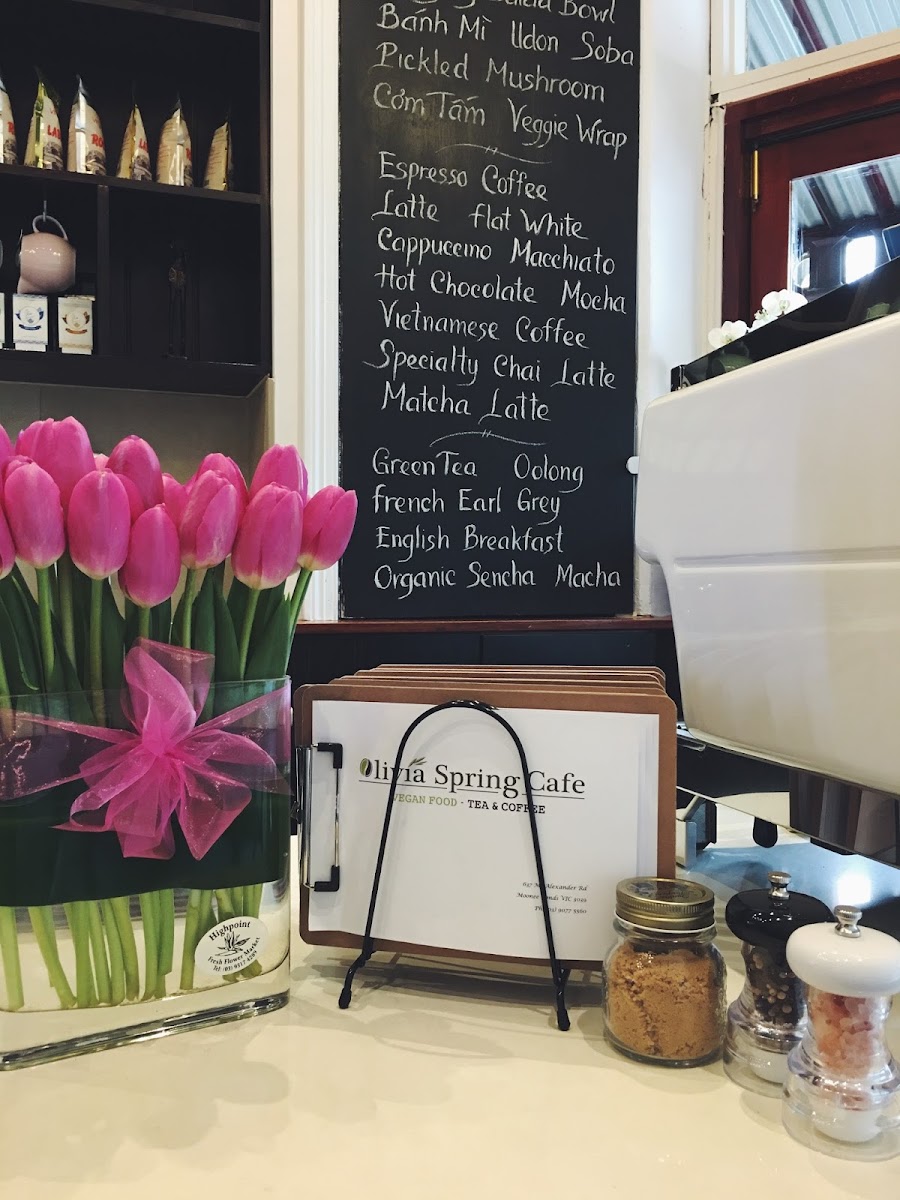 Bowl
Bánh Mì Udon Soba
Pickled Mushroom
Cơm Tấm Veggie Wrap
Espresso Coffee
Latte flat White
Cappuccino Macchiato
Hot Chocolate Mocha
Vietnamese Coffee
Specialty Chai Latte
Matcha Latte
Green Tea Oolong
french Earl Grey
English Breakfast
Organic Sencha Macha
Olivia Spring Cafe
VEGAN FOOD · TEA & COFFEE
Alexander Rd
VIC 3039
9077
Highpoint
Fresh Flower Market
Tel: (03) 9317